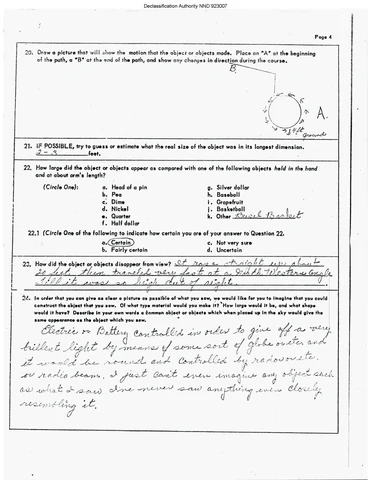 Declassification Authority NND 923007
Page 4
20. Draw a picture that will show the motion that the object or objects made. Place an "A" at the beginning
of the path, a "B" at the end of the path, and show any changes in direction during the course.
B
A.
30 ft
grounds
21. IF POSSIBLE, try to guess or estimate what the real size of the object was in its longest dimension.
2 - 3 feet.
22. How large did the object or objects appear as compared with one of the following objects held in the hand
and at about arm's length?
(Circle One): a. Head of a pin g. Silver dollar
b. Pea h. Baseball
c. Dime i. Grapefruit
d. Nickel j. Basketball
e. Quarter k. Other Bushel Basket
f. Half dollar
22.1 (Circle One of the following to indicate how certain you are of your answer to Question 22.
a. Certain c. Not very sure
b. Fairly certain d. Uncertain
23. How did the object or objects disappear from view? It rose straight up about
30 feet then traveled very fast at a South Western angle
till it was so high out of sight.
24. In order that you can give as clear a picture as possible of what you saw, we would like for you to imagine that you could
construct the object that you saw. Of what type material would you make it? How large would it be, and what shape
would it have? Describe in your own words a common object or objects which when placed up in the sky would give the
same appearance as the object which you saw.
Electric or Battery controlled in order to give off a very
brillest light by means of some sort of globe outer and
it would be round and controlled by
or radio beam. I just can't even imagine any object such
as what I saw I've never saw anything even closely
resembling it.